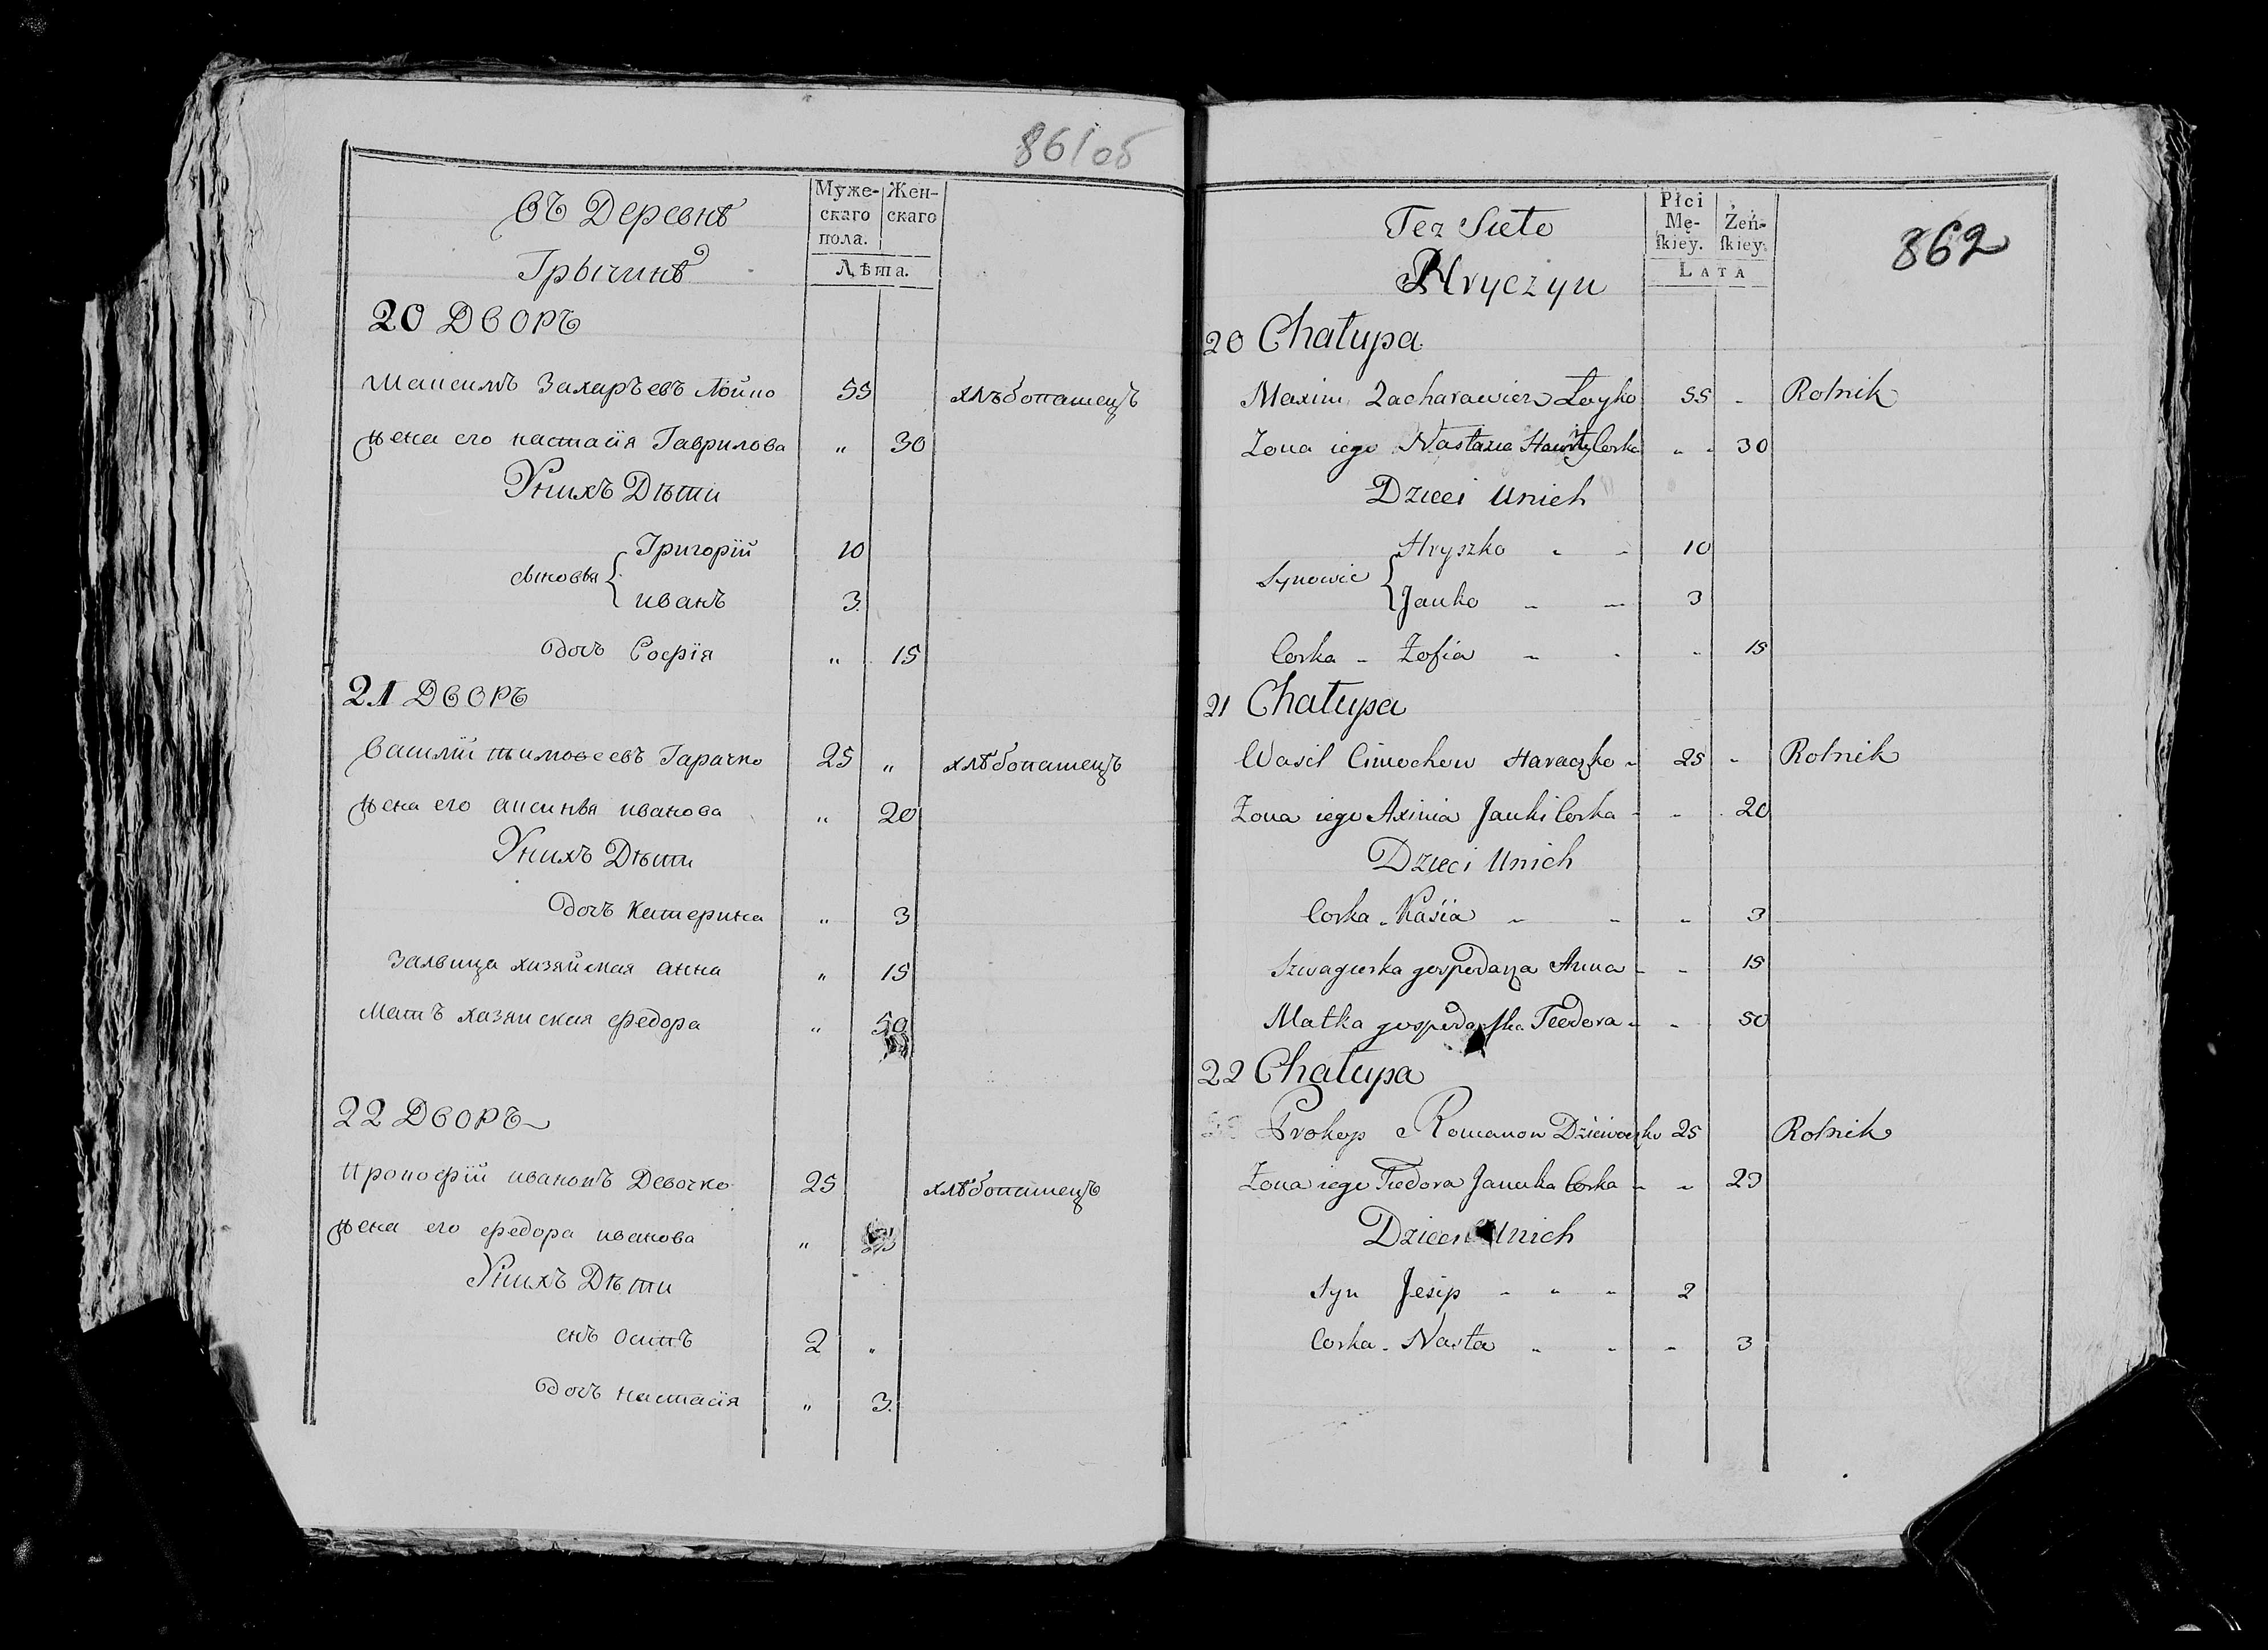 861 об
Въ Деревнѣ
Грычинѣ
Муже-
скаго
пола.
Жен-
скаго
Лѣта.
20 Дворъ
Максимъ Захаръевъ Лойко 55 хлѣбопашецъ
жена его настасiя Гаврилова " 30
Унихъ Дѣти
сыновья { Григорiй 10
иванъ 3.
дочь Софiя " 15
21 Дворъ
Василiй тимовеевъ Гарачко 25 " хлѣбопашецъ
жена его аксинья иванова " 20
Унихъ Дѣти
дочъ Катерина " 3
Залвица хизяйская анна " 15
Матъ хазяиская федора " 50
22 Дворъ
Прокофiй Девочко 25 хлѣбопашецъ
жена его федора иванова "
Унихъ Дѣти
снъ осипъ 2 "
дочъ настасiя " 3.
862
Tez Siele
Hryczyn
Płci
Mę-
ſkiey.
Żeń-
ſkiey.
LATA
20 Chałupa
Maxim Zacharawicz Łoyko 55 - Rolnik
Zona iego Nastazia Corka - - 30
Dzieci Unich
Synowie { Hryszko - - 10
Janko - - 3
Corka - Zofia - - - 15
21 Chałupa
Wasil Cimochow Haraczko - 25 - Rolnik
Zona iego Axinia Janki Corka - - 20
Dzieci Unich
Corka - Kasia - - - 3
Szwagierka gospodarza Anna - - 15
Matka gospodarska Teodora - - 50
22 Chałupa
Prokop Romanow Dziewoczko 25 Rolnik
Zona iego Fiedora Januka Corka - - 23
Dzieci Unich
Syn Jesip - " - 2
Corka - Nasta - - - 3